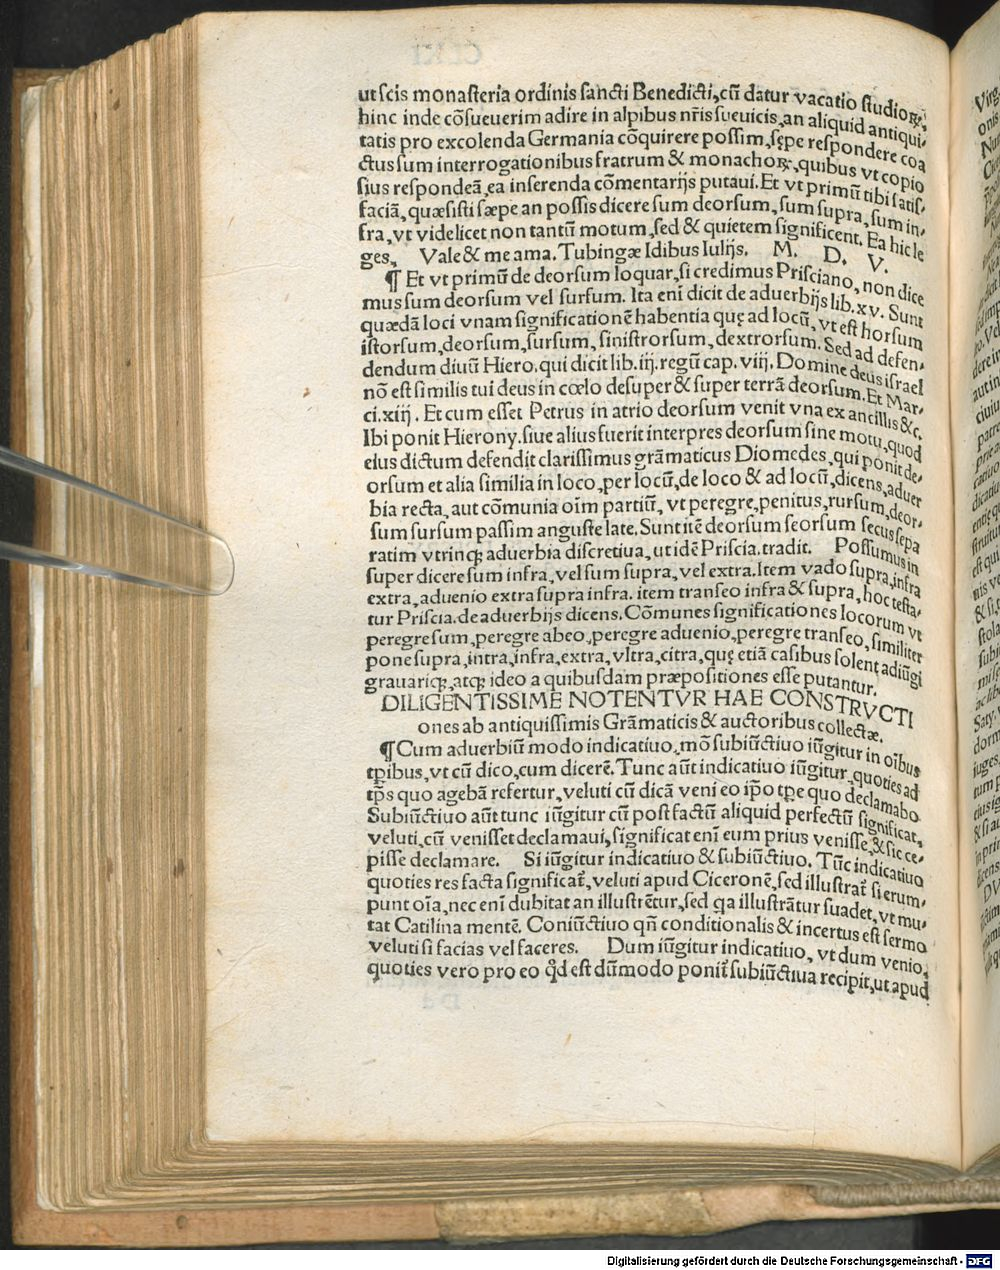 ut scis monasteria ordinis sancti Benedicti, cũ datur vacatio studioꝝ,
hinc inde cõsueuerim adire in alpibus nr̃is sueuicis, an aliquid antiqui⸗
tatis pro excolenda Germania cõquirere possim, sępe respondere coa
ctus sum interrogationibus fratrum & monachoꝝ, quibus vt copio
sius respondeã, ea inserenda cõmentarijs putaui. Et vt primũ tibi satis⸗
faciã, quæsisti sæpe an possis dicere sum deorsum, sum supra, sum in⸗
fra, vt videlicet non tantũ motum, sed & quietem significent. Ea hic le
ges, Vale & me ama. Tubingæ Idibus Iulijs. M. D. V.
¶ Et vt primũ de deorsum loquar, si credimus Prisciano, non dice
mus sum deorsum vel sursum. Ita eni dicit de aduerbijs lib. xv. Sunt
quædã loci vnam significationẽ habentia quę ad locũ, vt est horsum
istorsum, deorsum, sursum, sinistrorsum, dextrorsum. Sed ad defen⸗
dendum diuũ Hiero. qui dicit lib. iij. regũ cap. viij. Domine deus israel
nõ est similis tui deus in cœlo desuper & super terrã deorsum. Et Mar⸗
ci. xiij. Et cum esset Petrus in atrio deorsum venit vna ex ancillis &c.
Ibi ponit Hierony. siue alius fuerit interpres deorsum sine motu, quod
eius dictum defendit clarissimus grãmaticus Diomedes, qui ponit de⸗
orsum et alia similia in loco, per locũ, de loco & ad locũ, dicens, aduer
bia recta, aut cõmunia oĩm partiũ, vt peregre, penitus, rursum, deor⸗
sum sursum passim anguste late. Sunt itẽ deorsum seorsum secus sepa
ratim vtrinqꝫ aduerbia discretiua, ut idẽ Priscia. tradit. Possumus in
super dicere sum infra, vel sum supra, vel extra. Item vado supra, infra
extra, aduenio extra supra infra. item transeo infra & supra, hoc testa⸗
tur Priscia. de aduerbijs dicens. Cõmunes significationes locorum vt
peregre sum, peregre abeo, peregre aduenio, peregre transeo, similiter
pone supra, intra, infra, extra, vltra, citra, quę etiã casibus solent adiũgi
grauariqꝫ, atqꝫ ideo a quibusdam præpositiones esse putantur.
DILIGENTISSIME NOTENTVR HAE CONSTRVCTI
ones ab antiquissimis Grãmaticis & auctoribus collectæ.
¶ Cum aduerbiũ modo indicatiuo, mõ subiũctiuo iũgitur in oĩbus
tp̃ibus, vt cũ dico, cum dicerẽ. Tunc aũt indicatiuo iũgitur, quoties ad
tp̃s quo agebã refertur, veluti cũ dicã veni eo ip̃o tp̃e quo declamabo
Subiũctiuo aũt tunc iũgitur cũ post factũ aliquid perfectũ significat,
veluti, cũ venisset declamaui, significat enĩ eum prius venisse, & sic ce⸗
pisse declamare. Si iũgitur indicatiuo & subiũctiuo. Tũc indicatiuo
quoties res facta significat̃, veluti apud Ciceronẽ, sed illustrat̃ si erum⸗
punt oĩa, nec enĩ dubitat an illustrẽtur, sed qa illustrãtur suadet, vt mu⸗
tat Catilina mentẽ. Coniũctiuo qñ conditionalis & incertus est sermo
veluti si facias vel faceres. Dum iũgitur indicatiuo, vt dum venio,
quoties vero pro eo qd̃ est dũmodo ponit̃ subiũctiua recipit, ut apud
Digitalisierung gefördert durch die Deutsche Forschungsgemeinschaft - DFG